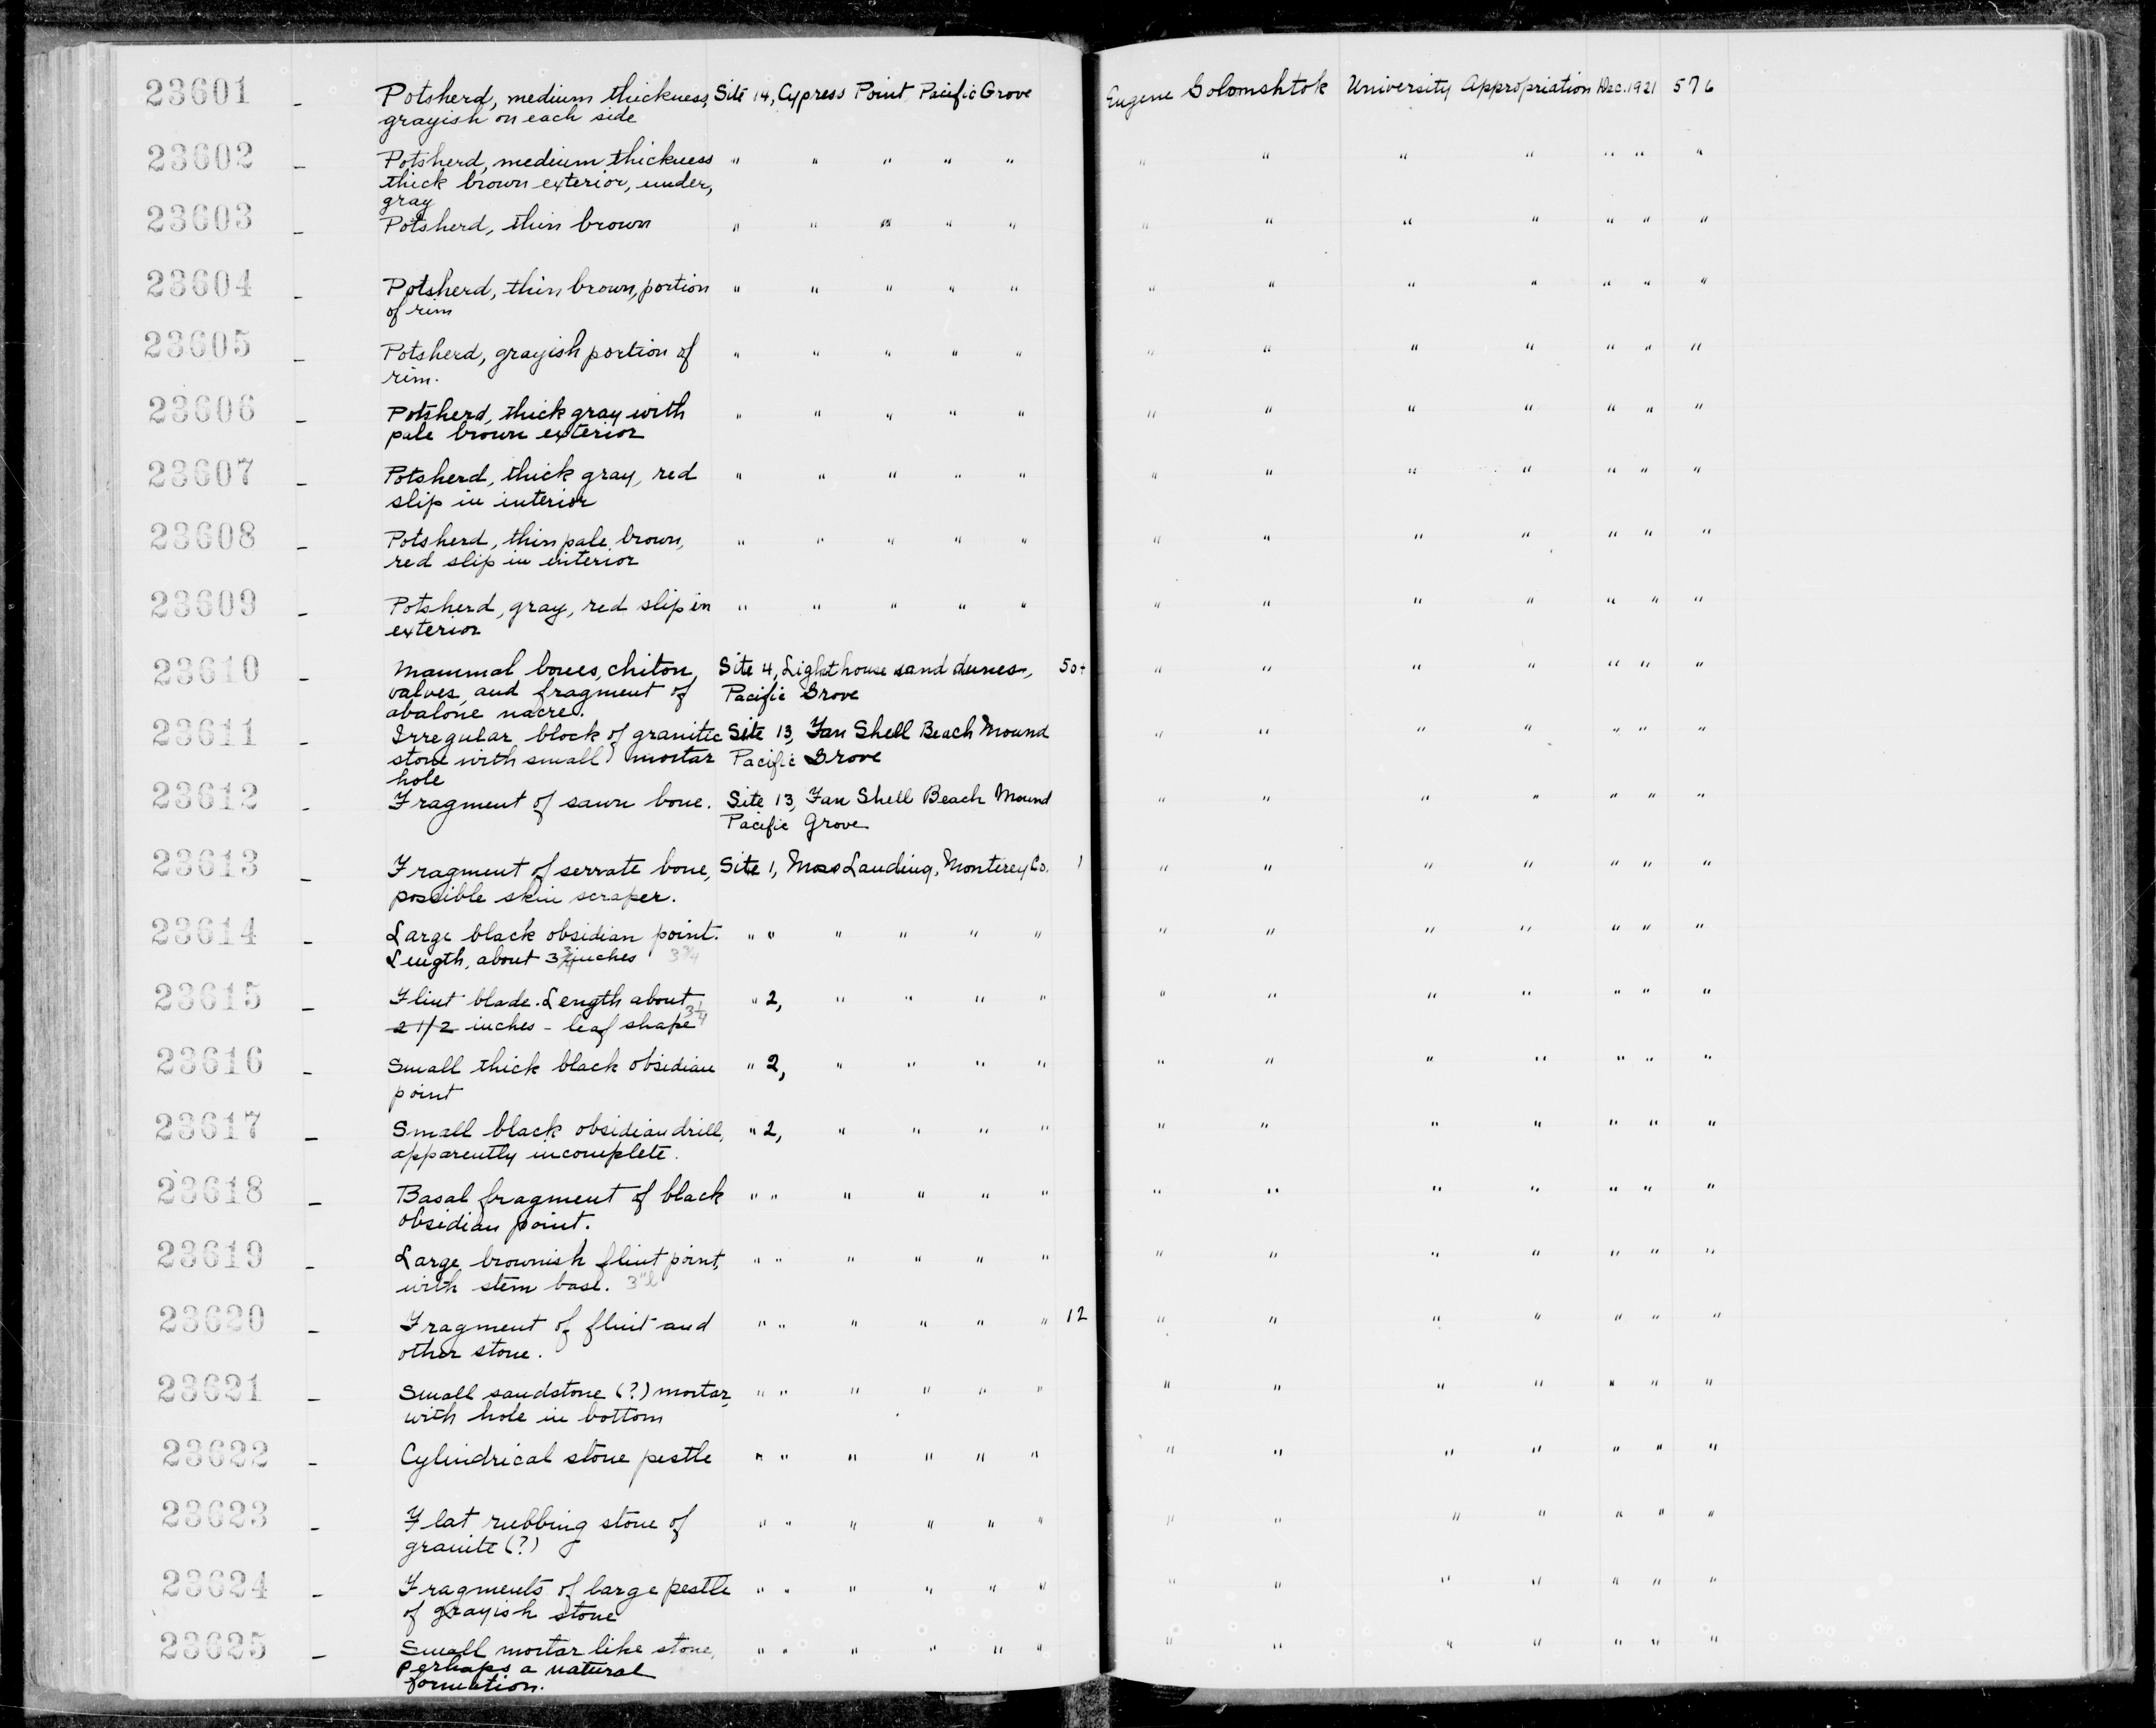 23601 - Potsherd, medium thickness, Site 14, Cypress Point Pacific Grove Eugene Golomshtok University Appropriation Dec. 1921 576
grayish on each side
23602 - Potsherd, medium thickness " " " " " " " " " " " "
thick brown exterior, under,
gray
23603 - Potsherd, thin brown " " " " " " " " " " " "
23604 - Potsherd, thin brown, portion " " " " " " " " " " " "
of rim
23605 - Potsherd, grayish portion of " " " " " " " " " " " "
rim.
23606 - Potsherd, thick gray with " " " " " " " " " " " "
pale brown exterior
23607 - Potsherd, thick gray, red " " " " " " " " " " " "
slip in interior
23608 - Potsherd, thin pale brown, " " " " " " " " " " " "
red slip in interior
23609 - Potsherd, gray, red slip in " " " " " " " " " " " "
exterior
23610 - Mammal bones, chiton, Site 4, Lighthouse sand dunes, 50+ " " " " " " "
valves, and fragment of Pacific Grove
abalone nacre.
23611 - Irregular block of granitic Site 13, Fan Shell Beach Mound " " " " " " "
stone with small mortar Pacific Grove
hole
23612 - Fragment of sawn bone. Site 13, Fan Shell Beach Mound " " " " " " "
Pacific Grove
23613 - Fragment of serrate bone, Site 1, Moss Landing, Monterey Co. 1 " " " " " " "
possible skin scraper.
23614 - Large black obsidian point. " " " " " " " " " " " " "
Length, about 3 3/4 inches 3 3/4
23615 - Flint blade. Length about " 2, " " " " " " " " " " "
2 1/2 inches - leaf shape 3 1/4
23616 - Small thick black obsidian " 2, " " " " " " " " " " "
point
23617 - Small black obsidian drill, " 2, " " " " " " " " " " "
apparently incomplete.
23618 - Basal fragment of black " " " " " " " " " " " " "
obsidian point.
23619 - Large brownish flint point, " " " " " " " " " " " " "
with stem base. 3"l
23620 - Fragment of flint and " " " " " " 12 " " " " " " "
other stone.
23621 - Small sandstone (?) mortar, " " " " " " " " " " " " "
with hole in bottom
23622 - Cylindrical stone pestle " " " " " " " " " " " " "
23623 - Flat rubbing stone of " " " " " " " " " " " " "
granite (?)
23624 - Fragments of large pestle " " " " " " " " " " " " "
of grayish stone
23625 - Small mortar like stone, " " " " " " " " " " " " "
perhaps a natural
formation.